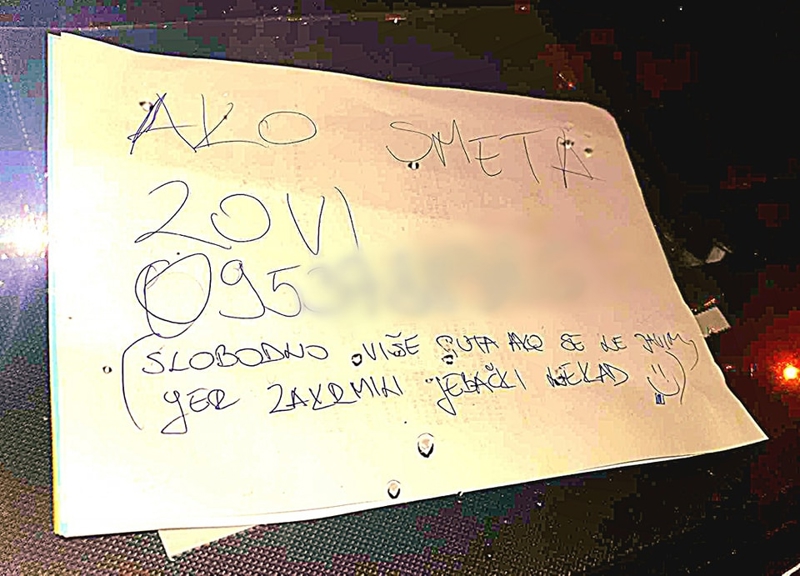 AKO SMETA
ZOVI
095
(SLOBODNO VIŠE PUTA AKO SE NE JAVIM
JER ZAKRMIM JEBAČKI NEKAD :))